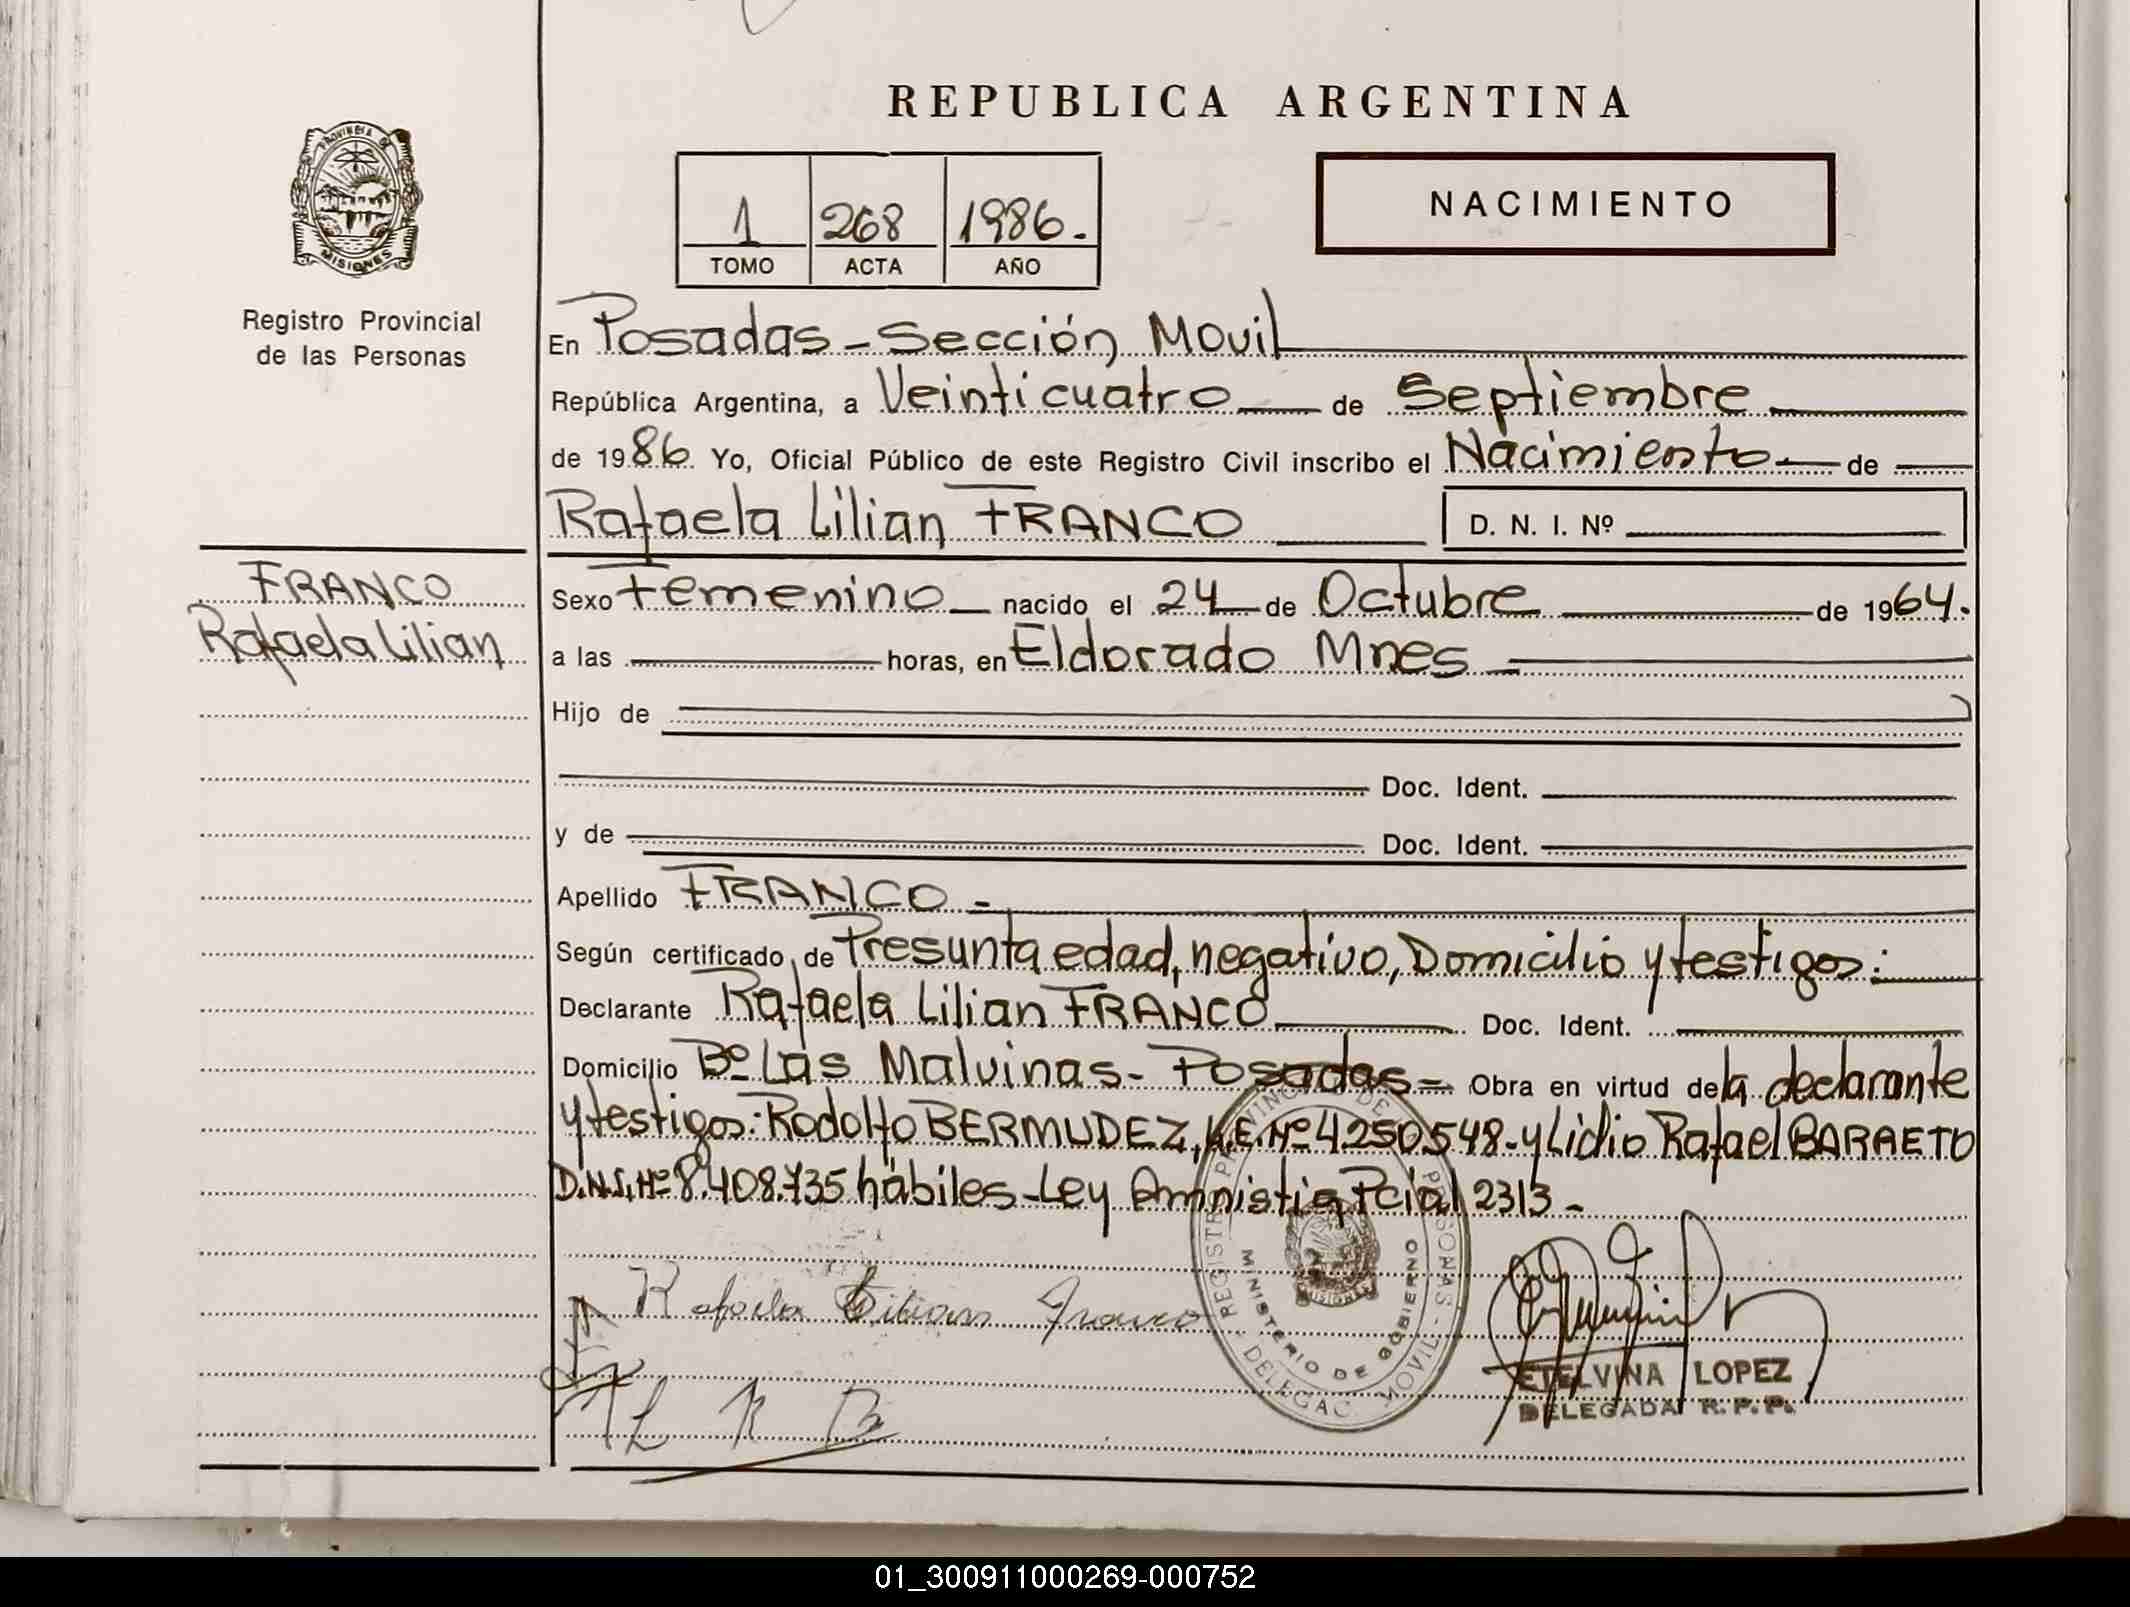 REPUBLICA ARGENTINA
PROVINCIA DE
MISIONES
Registro Provincial
de las Personas
1 268 1986.
TOMO ACTA AÑO
NACIMIENTO
En Posadas - Sección Movil
República Argentina, a Veinticuatro de Septiembre
de 1986 Yo, Oficial Público de este Registro Civil inscribo el Nacimiento de
Rafaela Lilian FRANCO D. N. I. Nº
FRANCO
Rafaela Lilian
Sexo Femenino nacido el 24 de Octubre de 1964.
a las horas, en Eldorado Mnes
Hijo de
Doc. Ident.
y de Doc. Ident.
Apellido FRANCO -
Según certificado de Presunta edad, negativo, Domicilio y testigos:
Declarante Rafaela Lilian FRANCO Doc. Ident.
Domicilio Bº Las Malvinas - Posadas = Obra en virtud de la declarante
y testigos: Rodolfo BERMUDEZ, L.E. Nº 4.250.548 - y Lidio Rafael BARRETO
D.N.I. Nº 8.408.735 hábiles - Ley Amnistia Pcial 2313 -
Rafaela Lilian Franco
L R B
REGISTRO PROVINCIAL DE PERSONAS - DELEGAC. MOVIL -
MINISTERIO DE GOBIERNO
MISIONES
ETELVINA LOPEZ
DELEGADA R. P. P.
01_300911000269-000752